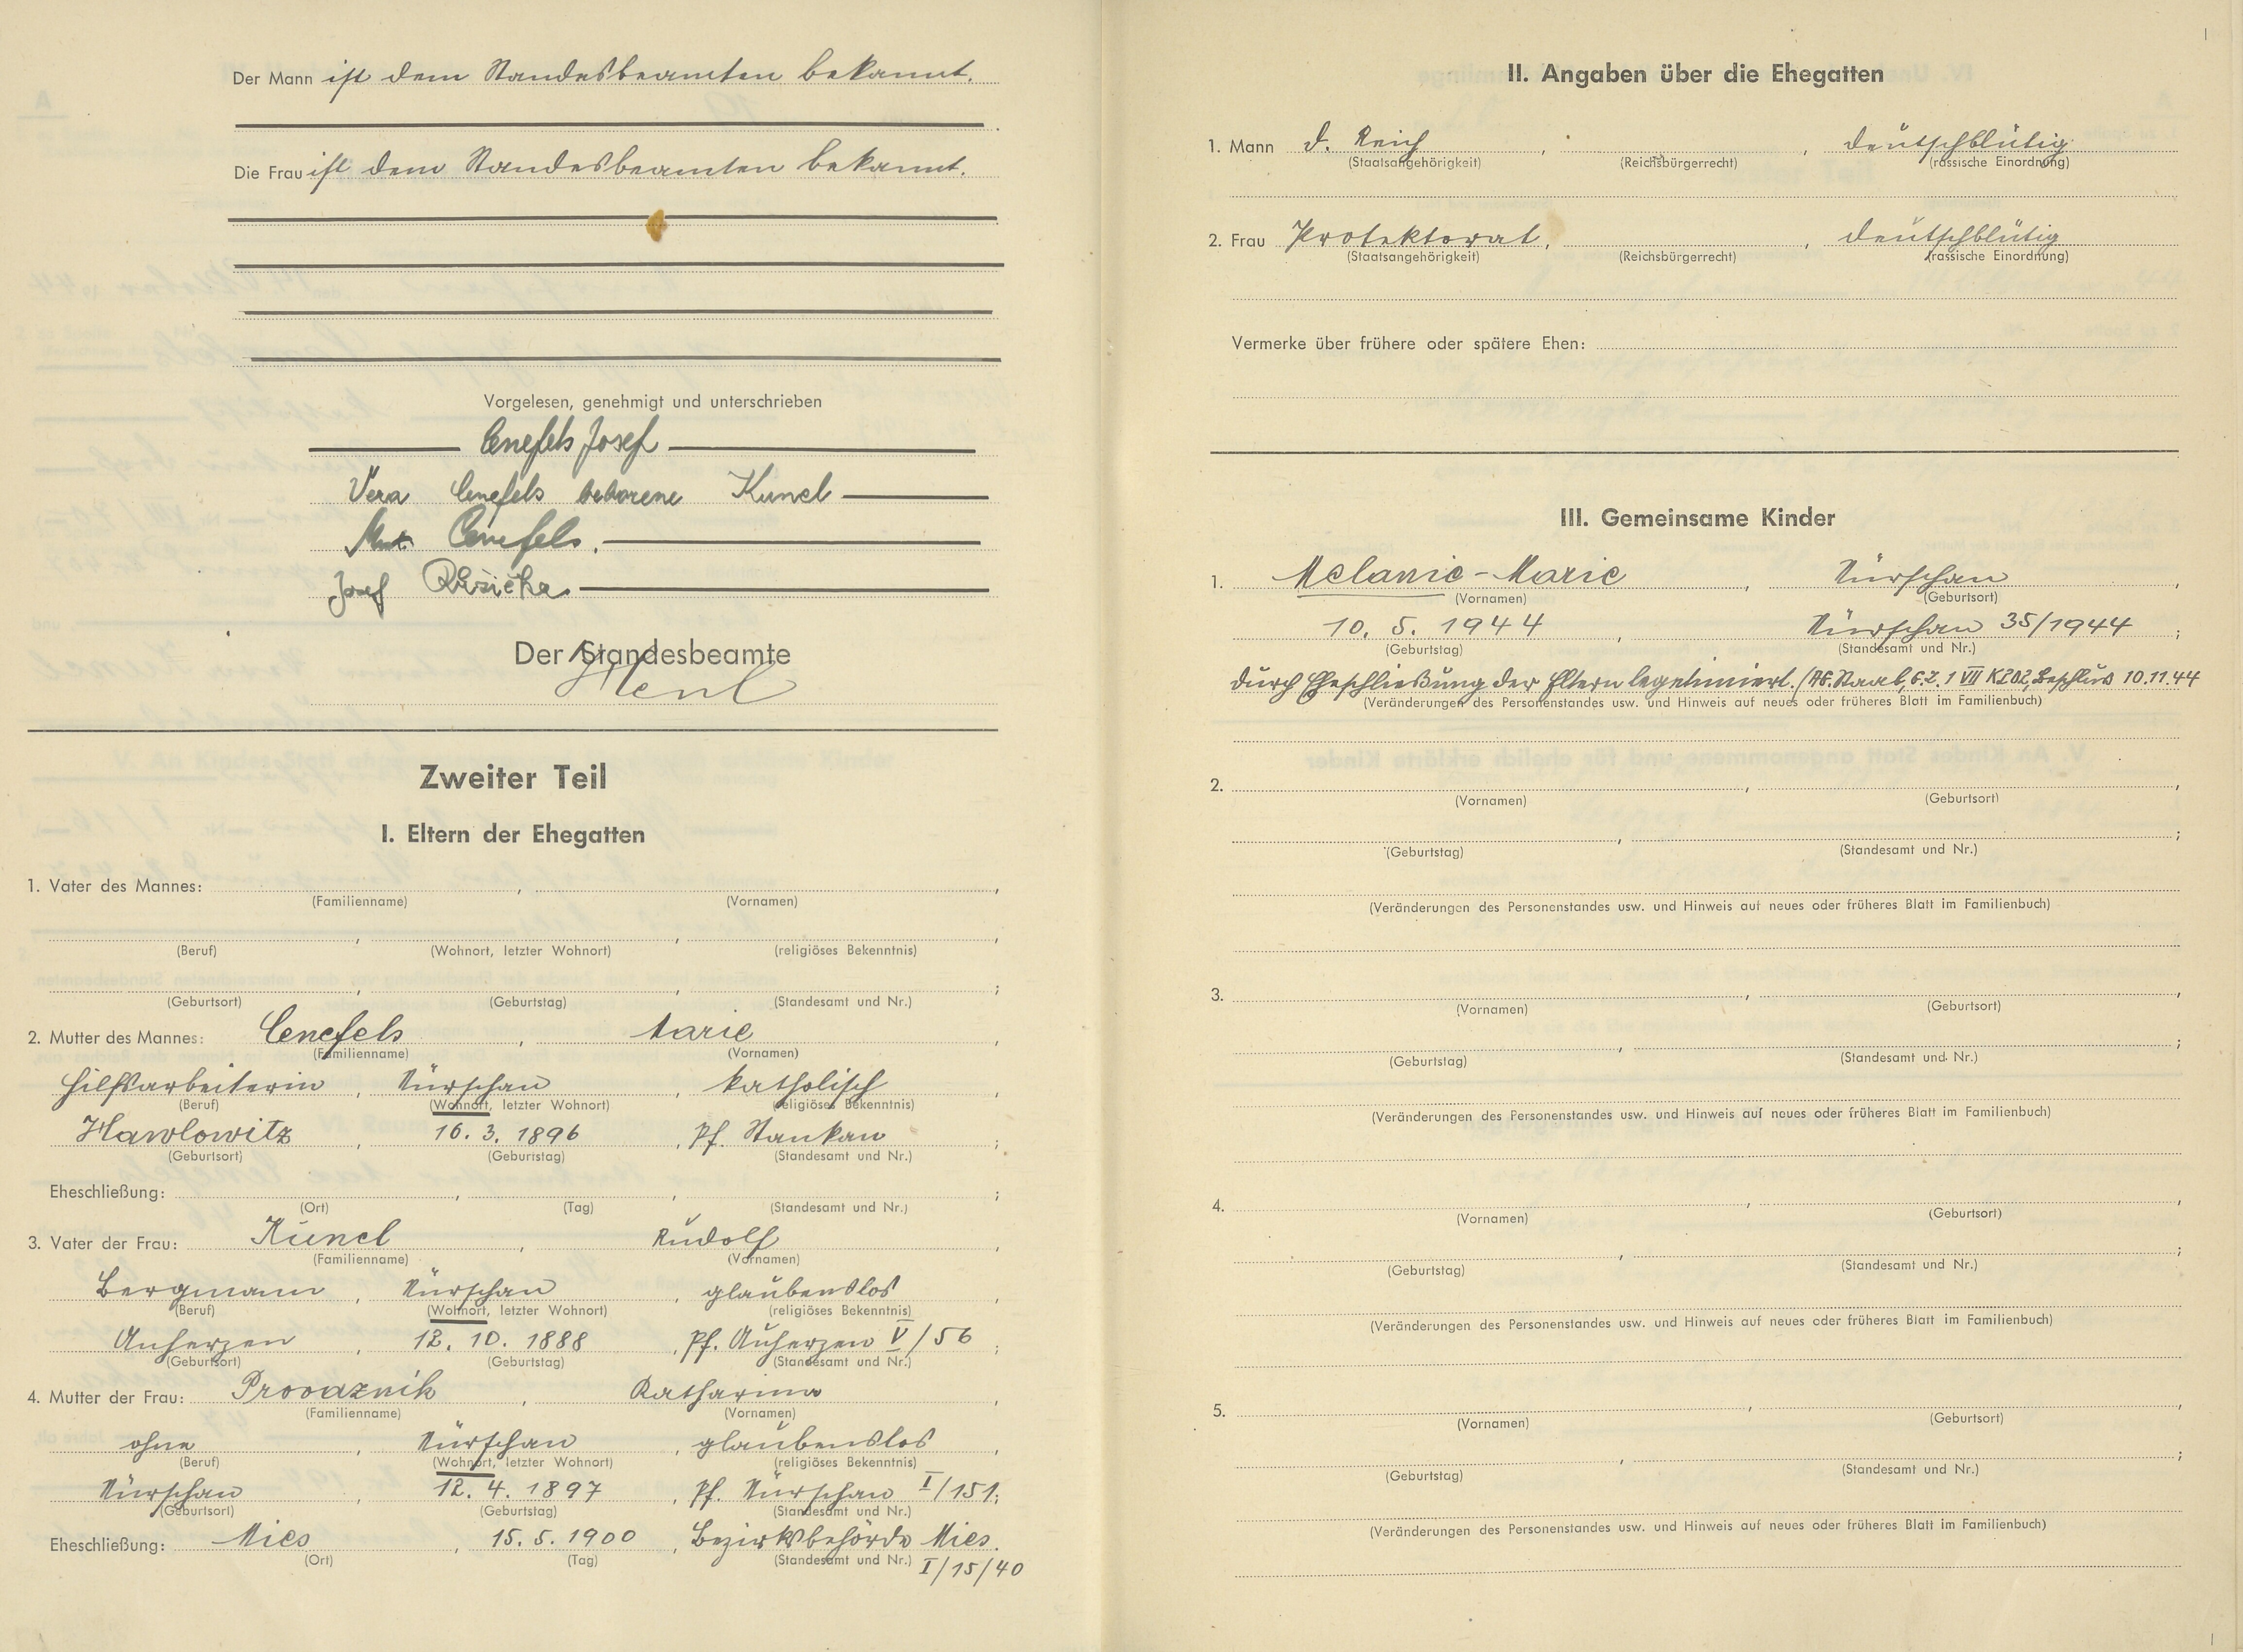 Der Mann ist dem Standesbeamten bekannt.
Die Frau ist dem Standesbeamten bekannt.
Vorgelesen, genehmigt und unterschrieben
Cenefels Josef
Vera Cenefels geborene Kuncl
Cenefels.
Josef Růžička
Der Standesbeamte
Zweiter Teil
I. Eltern der Ehegatten
1. Vater des Mannes: , ,
(Familienname) (Vornamen)
(Beruf) (Wohnort, letzter Wohnort) (religiöses Bekenntnis)
(Geburtsort) (Geburtstag) (Standesamt und Nr.)
2. Mutter des Mannes: Cenefels , Marie ,
(Familienname) (Vornamen)
Hilfsarbeiterin , Nürschan , katholisch ,
(Beruf) (Wohnort, letzter Wohnort) (religiöses Bekenntnis)
Hawlowitz , 16. 3. 1896 , Pf. Stankau ;
(Geburtsort) (Geburtstag) (Standesamt und Nr.)
Eheschließung: , , ;
(Ort) (Tag) (Standesamt und Nr.)
3. Vater der Frau: Kuncl , Rudolf ,
(Familienname) (Vornamen)
Bergmann , Nürschan , glaubenslos ,
(Beruf) (Wohnort, letzter Wohnort) (religiöses Bekenntnis)
Auherzen , 12. 10. 1888 , Pf. Auherzen V/56 ;
(Geburtsort) (Geburtstag) (Standesamt und Nr.)
4. Mutter der Frau: Provaznik , Katharina ,
(Familienname) (Vornamen)
ohne , Nürschan , glaubenslos ,
(Beruf) (Wohnort, letzter Wohnort) (religiöses Bekenntnis)
Nürschan , 12. 4. 1897 , Pf. Nürschan I/151;
(Geburtsort) (Geburtstag) (Standesamt und Nr.)
Eheschließung: Mies , 15. 5. 1900 , Bezirksbehörde Mies.
(Ort) (Tag) (Standesamt und Nr.) I/15/40
II. Angaben über die Ehegatten
1. Mann d. Reich , , deutschblütig
(Staatsangehörigkeit) (Reichsbürgerrecht) (rassische Einordnung)
2. Frau Protektorat , , deutschblütig
(Staatsangehörigkeit) (Reichsbürgerrecht) (rassische Einordnung)
Vermerke über frühere oder spätere Ehen:
III. Gemeinsame Kinder
1. Melanie-Marie , Nürschan ,
(Vornamen) (Geburtsort)
10. 5. 1944 , Nürschan 35/1944 ;
(Geburtstag) (Standesamt und Nr.)
durch Eheschließung der Eltern legetimiert. (AG. Staab, G.Z. 1 VII Beschlus 10.11.44
(Veränderungen des Personenstandes usw. und Hinweis auf neues oder früheres Blatt im Familienbuch)
2. , ,
(Vornamen) (Geburtsort)
(Geburtstag) (Standesamt und Nr.)
(Veränderungen des Personenstandes usw. und Hinweis auf neues oder früheres Blatt im Familienbuch)
3. , ,
(Vornamen) (Geburtsort)
(Geburtstag) (Standesamt und Nr.)
(Veränderungen des Personenstandes usw. und Hinweis auf neues oder früheres Blatt im Familienbuch)
4. , ,
(Vornamen) (Geburtsort)
(Geburtstag) (Standesamt und Nr.)
(Veränderungen des Personenstandes usw. und Hinweis auf neues oder früheres Blatt im Familienbuch)
5. , ,
(Vornamen) (Geburtsort)
(Geburtstag) (Standesamt und Nr.)
(Veränderungen des Personenstandes usw. und Hinweis auf neues oder früheres Blatt im Familienbuch)